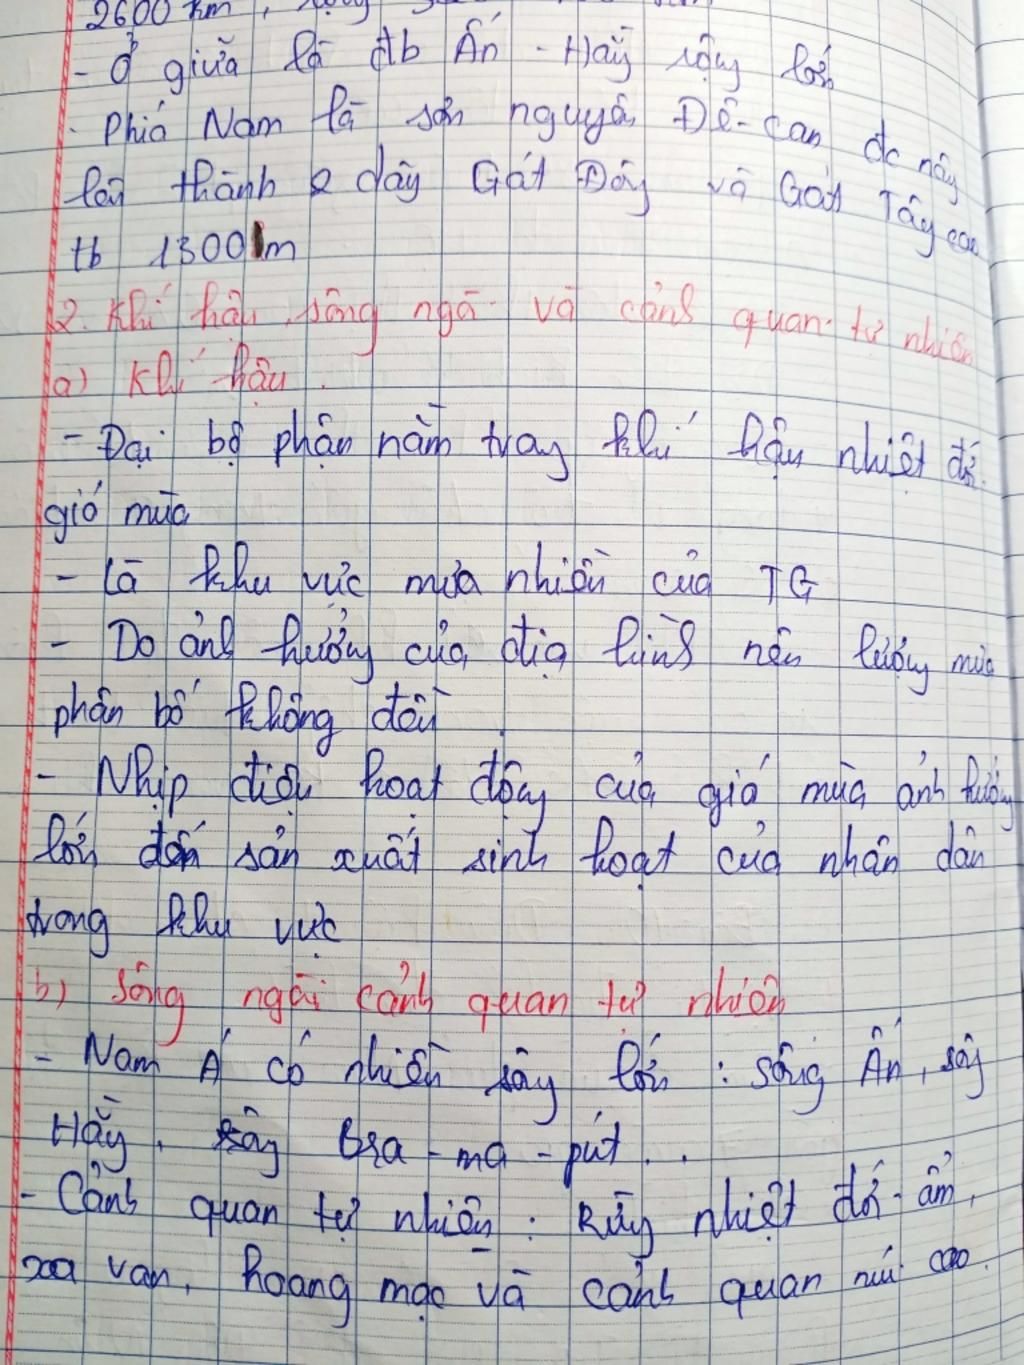 2600 km, rộng
- Ở giữa là đb Ấn - Hằng rộng lớn
- Phía Nam là sơn nguyên Đê-can đc nâng
lên thành 2 dãy Gát Đông và Gát Tây cao
tb 1300m
2. Khí hậu, sông ngò và cảnh quan tự nhiên
a) Khí hậu.
- Đại bộ phận nằm trong khí hậu nhiệt đới
gió mùa
- Là khu vực mưa nhiều của TG
- Do ảnh hưởng của địa hình nên lượng mưa
phân bố không đều.
- Nhịp điệu hoạt động của gió mùa ảnh hưởng
lớn đến sản xuất sinh hoạt của nhân dân
trong khu vực
b) Sông ngòi cảnh quan tự nhiên
- Nam Á có nhiều sông lớn : sông Ấn, sông
Hằng, sông Bra - ma - pút...
- Cảnh quan tự nhiên : Rừng nhiệt đới ẩm,
xa van, hoang mạc và cảnh quan núi cao.